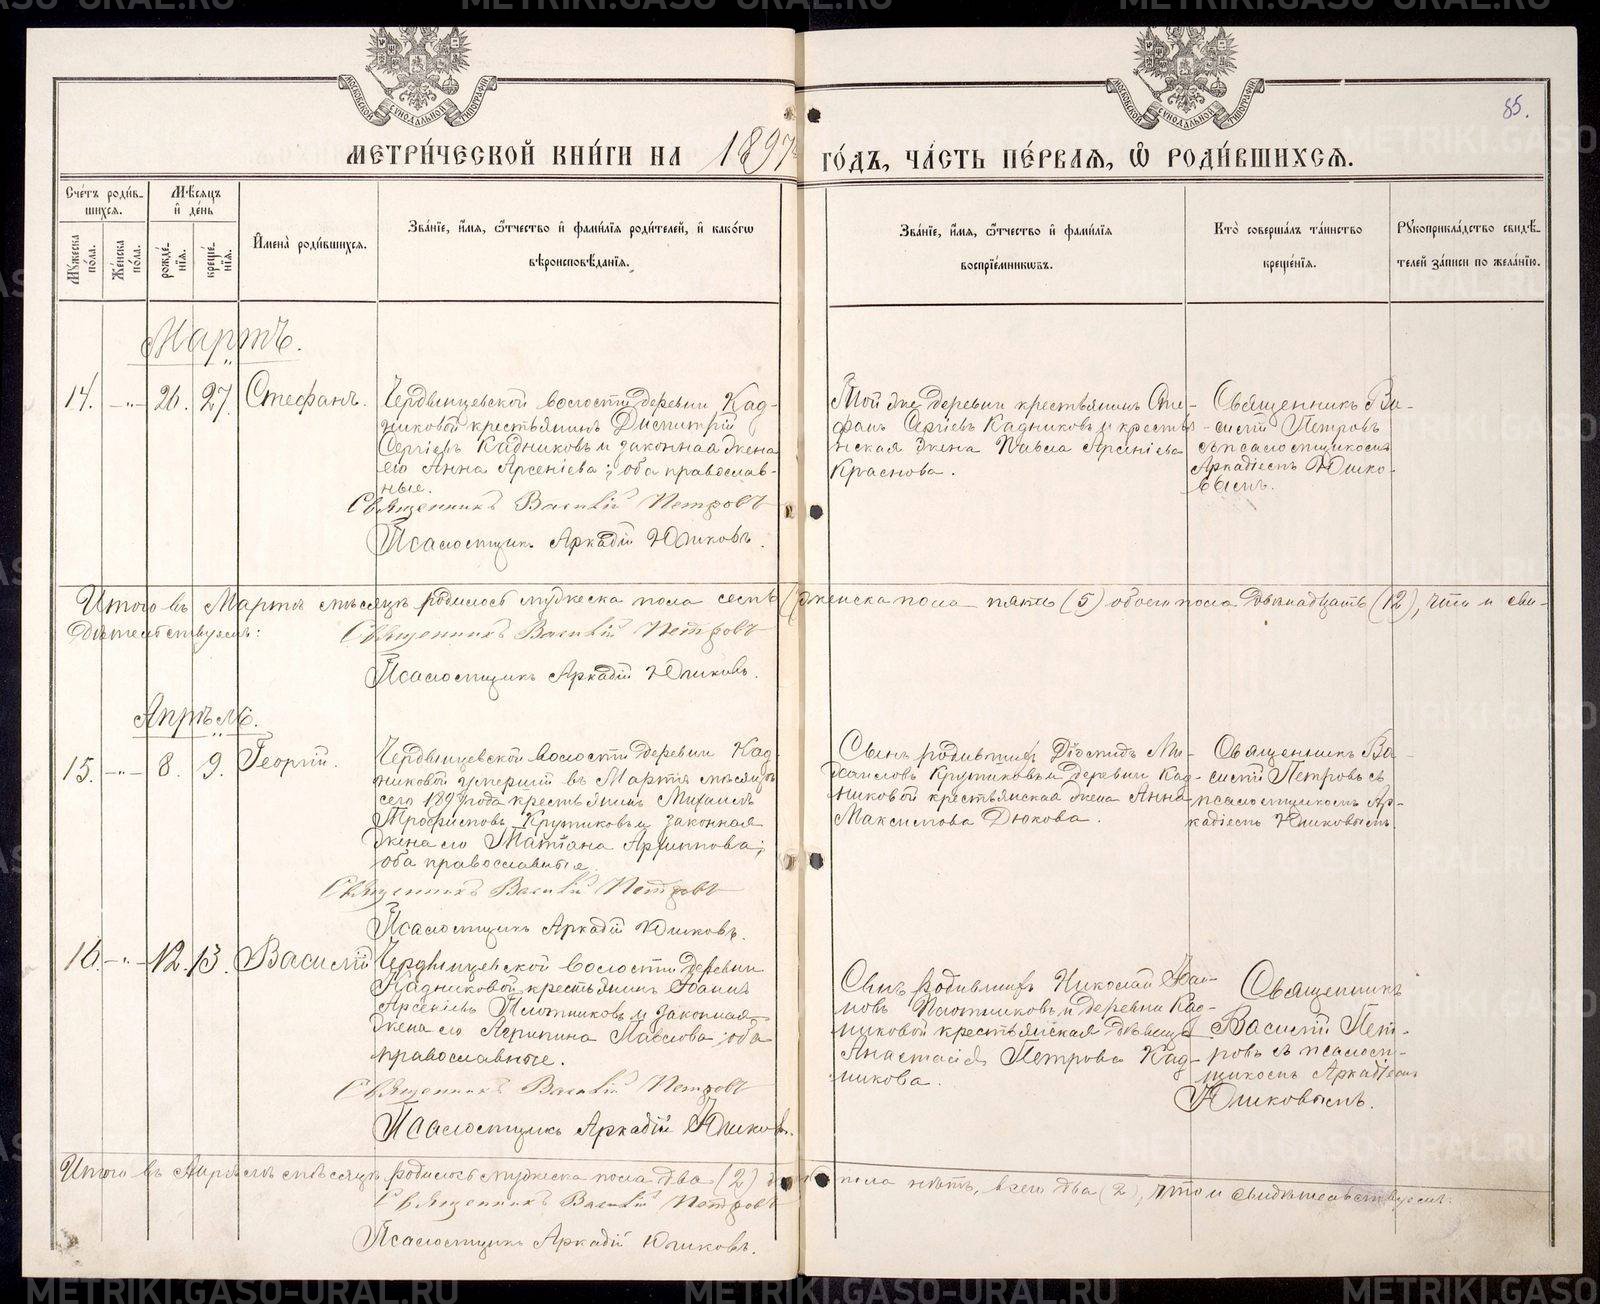 85.
МЕТРИ́ЧЕСКОЙ КНИ́ГИ НА 1897 ГО́ДЪ, ЧА́СТЬ ПЕ́РВАЯ, Ѡ҆ РОДИ́ВШИХСЯ.
Сче́тъ роди́в-
шихся.
Мѣ́сяцъ
и҆ де́нь
Мꙋ́жеска по́ла.
Же́нска по́ла.
рожде́-
нїя.
креще́-
нїя.
И҆мена̀ роди́вшихся.
Зва́нїе, и҆́мя, ѻ҆́тчество и҆ фами́лїя роди́телей, и҆ како́гѡ
вѣроисповѣ́данїя.
Зва́нїе, и҆́мя, ѻ҆́тчество и҆ фами́лїя
воспрїе́мникѡвъ.
Кто̀ соверша́лъ та́инство
креще́нїя.
Рꙋкоприкла́дство свидѣ́-
телей за́писи по жела́нїю.
Мартъ.
14. -„- 26. 27. Стефанъ.
Чердынцевской волости деревни Кад-
никовой крестьянинъ Димитрій
Сергіевъ Кадниковъ и законная жена
его Анна Арсеніева; оба православ-
ные.
Священникъ Василій Петровъ
Псаломщикъ Аркадій Юшковъ.
Той же деревни крестьянинъ Сте-
фанъ Сергіевъ Кадниковъ и кресть-
янская жена Павла Арсеніева
Краснова.
Священникъ Ва-
силій Петровъ
съ псаломщикомъ
Аркадіемъ Юшко-
вымъ.
Итого въ Мартѣ мѣсяцѣ родилось мужеска пола семь (7) женска пола пять (5) обоего пола двѣнадцать (12), что и сви-
дѣтельствуемъ:
Священникъ Василій Петровъ
Псаломщикъ Аркадій Юшковъ.
Апрѣль.
15. -„- 8. 9. Георгій.
Чердынцевской волости деревни Кад-
никовой умершій въ Мартѣ мѣсяцѣ
сего 1897 года крестьянинъ Михаилъ
Трофимовъ Крутиковъ и законная
жена его Татіана Архиппова;
оба православные.
Священникъ Василій Петровъ
Псаломщикъ Аркадій Юшковъ.
Сынъ родившихъ Діомидъ Ми-
хаиловъ Крутиковъ и деревни Кад-
никовой крестьянская жена Анна
Максимова Дюкова.
Священникъ Ва-
силій Петровъ съ
псаломщикомъ Ар-
кадіемъ Юшковымъ.
16. -„- 12. 13. Василій
Чердынцевской волости деревни
Кадниковой крестьянинъ Іоаннъ
Арсеніевъ Плотниковъ и законная
жена его Агрипина Павлова; оба
православные.
Священникъ Василій Петровъ
Псаломщикъ Аркадій Юшковъ.
Сынъ родившихъ Николай Іоан-
новъ Плотниковъ и деревни Кад-
никовой крестьянская дѣвица
Анастасія Петрова Кад-
никова.
Священникъ
Василій Пет-
ровъ съ псалом-
щикомъ Аркадіемъ
Юшковымъ.
Итого въ Апрѣлѣ мѣсяцѣ родилось мужеска пола два (2) пола нѣтъ, всего два (2), что и свидѣтельствуемъ:
Священникъ Василій Петровъ
Псаломщикъ Аркадій Юшковъ.
METRIKI.GASO-URAL.RU